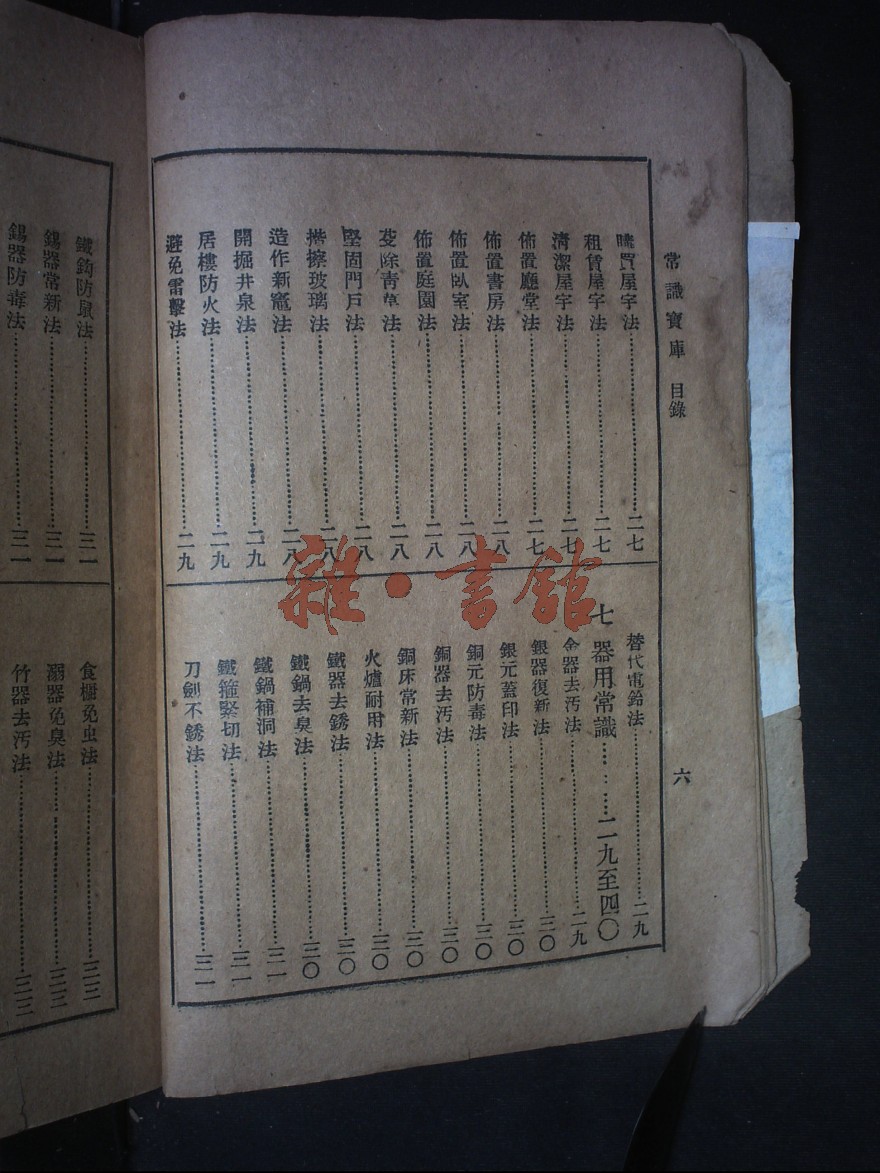 常識寶庫 目錄
六
購買屋宇法……二七
租賃屋宇法……二七
清潔屋宇法……二七
佈置廳堂法……二七
佈置書房法……二八
佈置臥室法……二八
佈置庭園法……二八
芟除靑草法……二八
堅固門戶法……二八
揩擦玻璃法……二八
造作新竈法……二八
開掘井泉法……二九
居樓防火法……二九
避免雷擊法……二九
替代電鈴法……二九
七 器用常識……二九至四〇
金器去汚法……二九
銀器復新法……三〇
銀元蓋印法……三〇
銅元防毒法……三〇
銅器去汚法……三〇
銅床常新法……三〇
火爐耐用法……三〇
鐵器去銹法……三〇
鐵鍋去臭法……三〇
鐵鍋補洞法……三一
鐵箍緊切法……三一
刀劍不銹法……三一
鐵鈎防鼠法……三一
錫器常新法……三一
錫器防毒法……三一
食櫥免虫法……三二
溺器免臭法……三二
竹器去汚法……三二
雜·書館